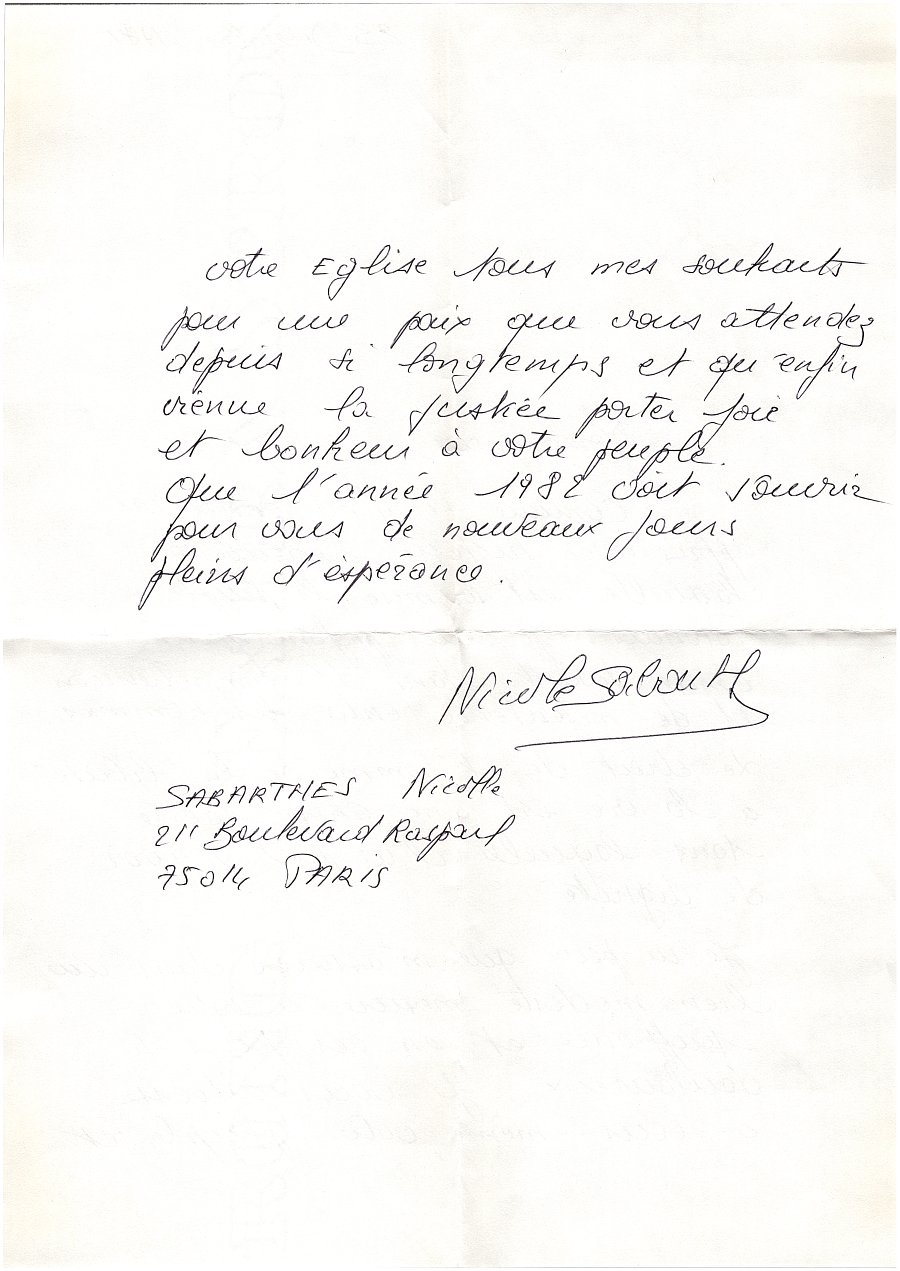 votre Eglise tous mes souhaits
pour une paix que vous attendez
depuis si longtemps et qu'enfin
vienne la justice porter joie
et bonheur à votre peuple.
Que l'année 1982 voit s'ouvrir
pour vous de nouveaux jours
pleins d'espérance.
Nicole Sabarth
SABARTHES Nicole
211 Boulevard Raspail
75014 PARIS